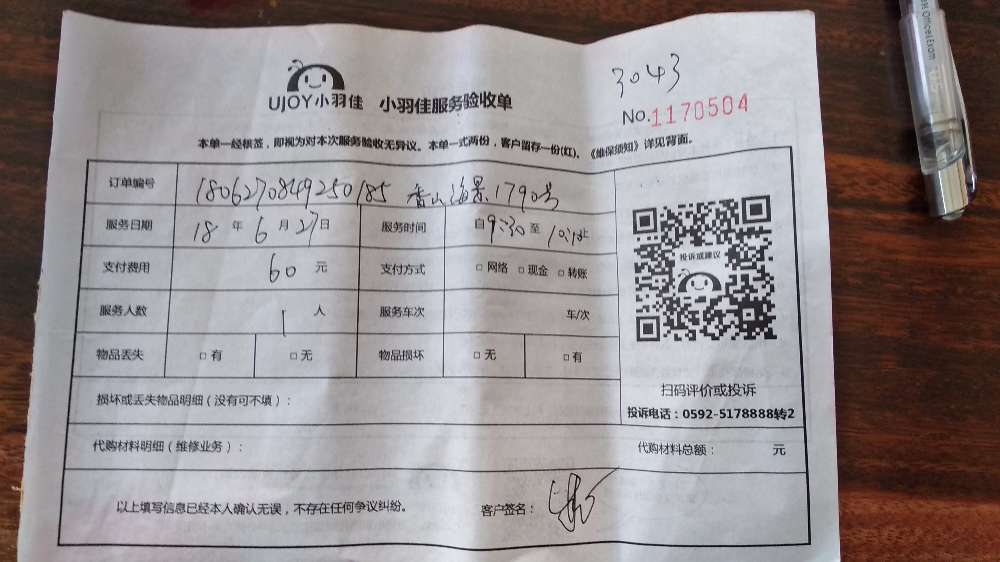 3043
UJOY小羽佳 小羽佳服务验收单
No.1170504
本单一经根签，即视为对本次服务验收无异议。本单一式两份，客户留存一份(红)、《维保须知》详见背面。
订单编号 1806270849250185 香山海景1790号
服务日期 18 年 6 月 27 日 服务时间 自 9:30 至
支付费用 60 元 支付方式 □ 网络 □ 现金 □ 转账
服务人数 1 人 服务车次 车/次
物品丢失 □ 有 □ 无 物品损坏 □ 无 □ 有
投诉或建议
扫码评价或投诉
投诉电话：0592-5178888转2
损坏或丢失物品明细（没有可不填）：
代购材料明细（维修业务）： 代购材料总额： 元
以上填写信息已经本人确认无误，不存在任何争议纠纷。 客户签名：
Office&Exam